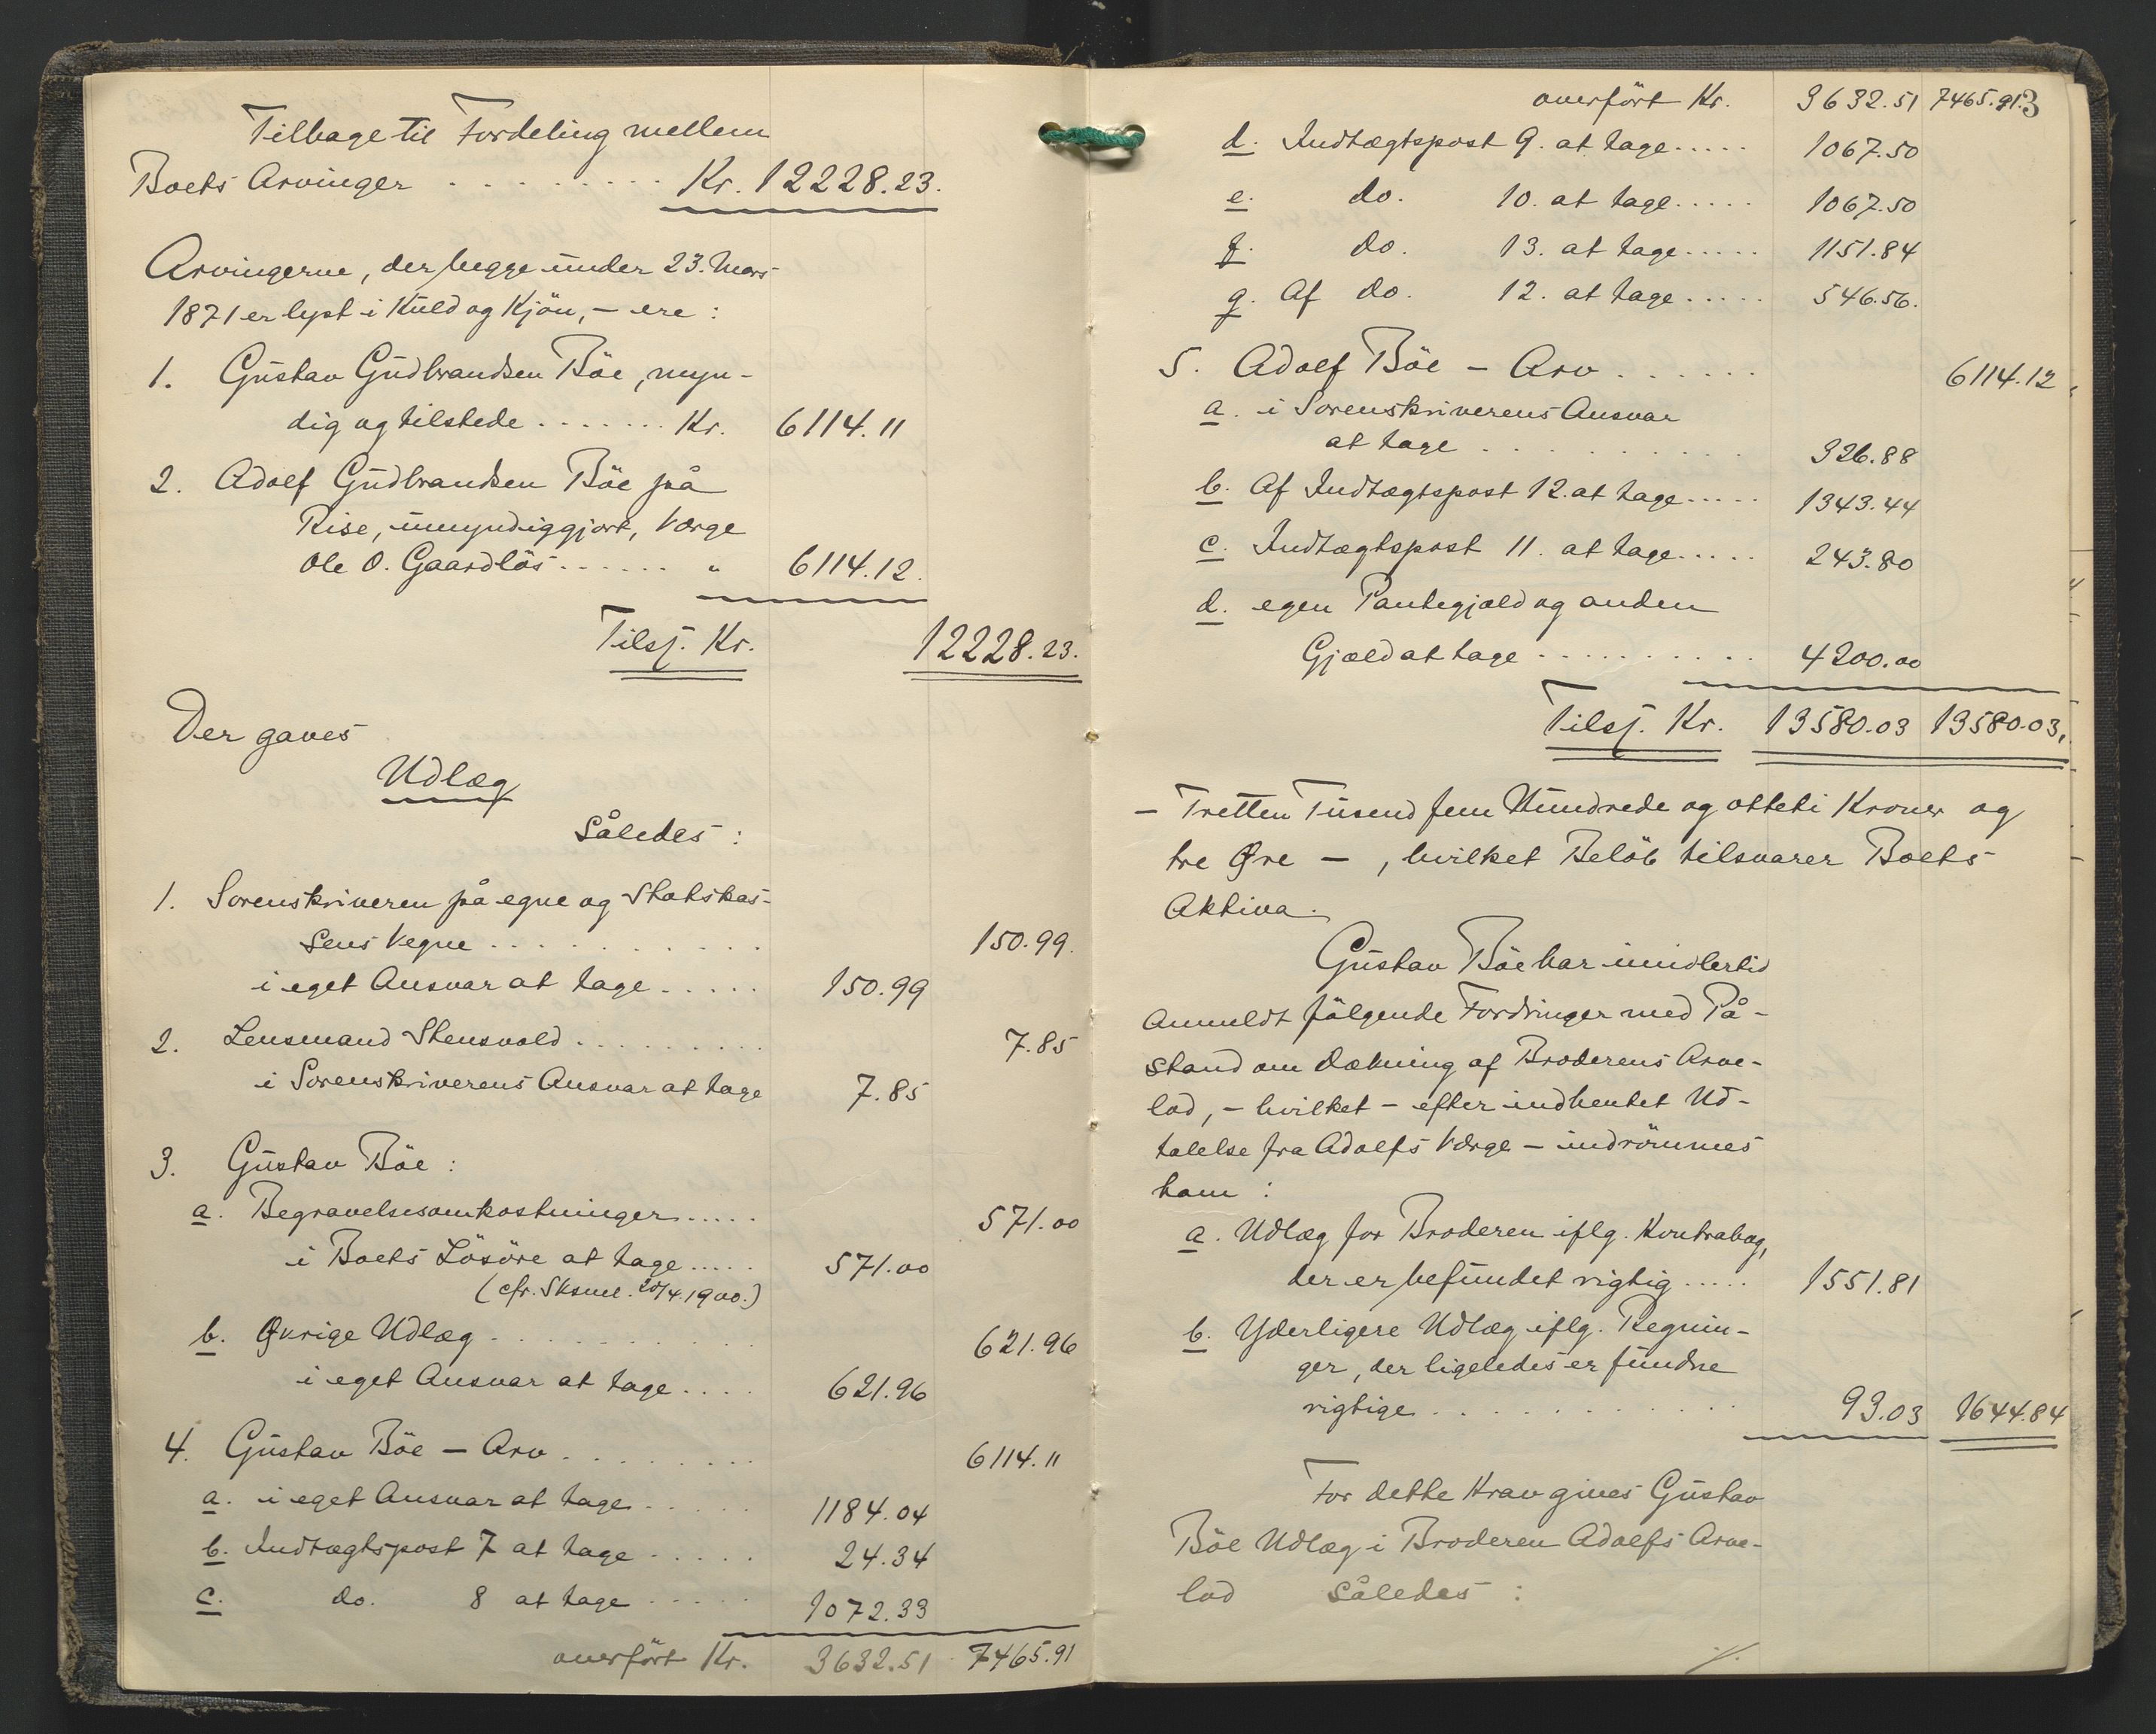 Tilbage til Fordeling mellem
Boets Arvinger . . . . . . . . . Kr. 12228.23.
Arvingerne, der begge under 23. Mars
1871 er lyst i Kuld og Kjön, – ere :
1. Gustav Gudbrandsen Böe, myn-
dig og tilstede . . . . . . . Kr. 6114.11
2. Adolf Gudbrandsen Böe på
Rise, umyndiggjort, Værge
Ole O. Gaardlös . . . . . . " 6114.12.
Tils. Kr. 12228.23.
Der gaves
Udlæg
således :
1. Sorenskriveren på egne og Statskas-
sens Vegne . . . . . . . . . . . 150.99.
i eget Ansvar at tage . . . . . 150.99
2. Lensmand Stensvold . . . . . . . . . 7.85
i Sorenskriverens Ansvar at tage 7.85
3. Gustav Böe :
a. Begravelsesomkostninger . . . . . 571.00
i Boets Lösöre at tage . . . . . 571.00
(cfr. Sksml. 20/4.1900.)
b. Øvrige Udlæg . . . . . . . . . . 621.96
i eget Ansvar at tage . . . . 621.96
4. Gustav Böe – Arv . . . . . . . . . 6114.11
a. i eget Ansvar at tage . . . . . 1184.04
b. Indtægtspost 7 at tage . . . . . 24.34
c. do. 8 at tage . . . . . 1072.33
overfört Kr. 3632.51 7465.91
3
overfört Kr. 3632.51 7465.91
d. Indtægtspost 9. at tage . . . . . 1067.50
e. do. 10. at tage . . . . . 1067.50
f. do. 13. at tage . . . . . 1151.84
g. Af do. 12. at tage . . . . . 546.56.
5. Adolf Böe – Arv . . . . . . 6114.12
a. i Sorenskriverens Ansvar
at tage . . . . . . . . . . . 326.88
b. Af Indtægtspost 12. at tage . . . . . 1343.44
c. Indtægtspost 11. at tage . . . . . 243.80
d. egen Pantegjæld og anden
Gjæld at tage . . . . . . . . . . 4200.00
Tils. Kr. 13580.03 13580.03,
– Tretten Tusend fem Hundrede og otteti Kroner og
tre Øre – , hvilket Belöb tilsvarer Boets
Aktiva.
Gustav Böe har imidlertid
anmeldt fölgende Fordringer med På-
stand om Dækning af Broderens Arve-
lod, – hvilket – efter indhentet Ud-
talelse fra Adolfs Værge – indrömmes
ham :
a. Udlæg for Broderen iflg. Kontrabog,
der er befundet rigtig . . . . . 1551.81
b. Yderligere Udlæg iflg. Regnin-
ger, der ligeledes er fundne
rigtige . . . . . . . . . . . . 93.03 1644.84
For dette Krav gives Gustav
Böe Udlæg i Broderen Adolfs Arve-
lod således :
./.